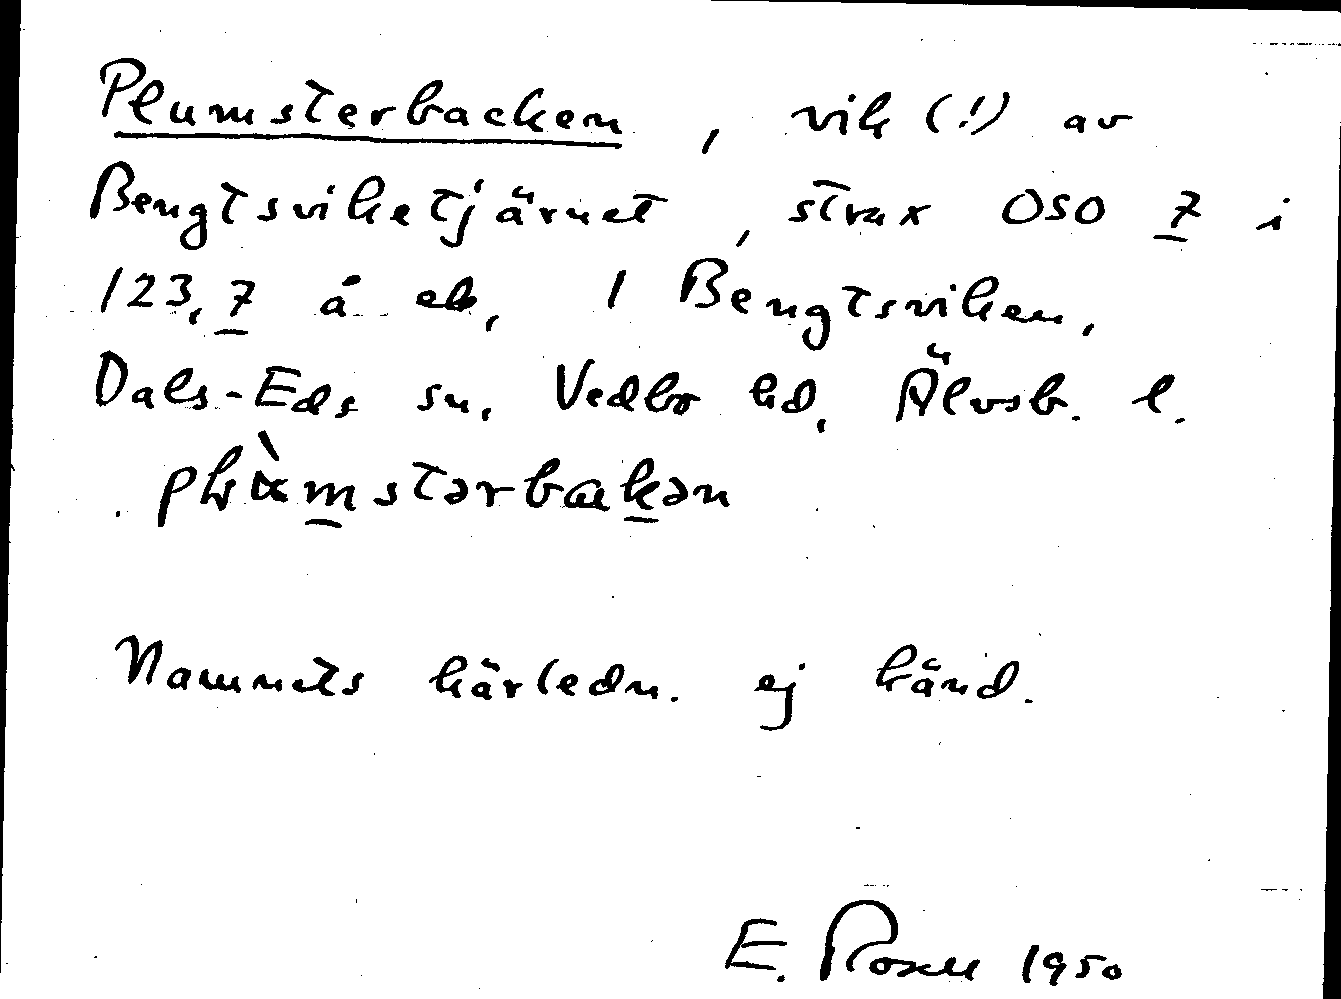 Plumsterbacken, vik (!) av
Bengtsviketjärnet, strax OSO 7 i
123,7 å eb, 1 Bengtsviken,
Dals-Eds sn, Vedbo hd, Älvsb. l.
Namnets härledn. ej känd.
E. Rosell 1950